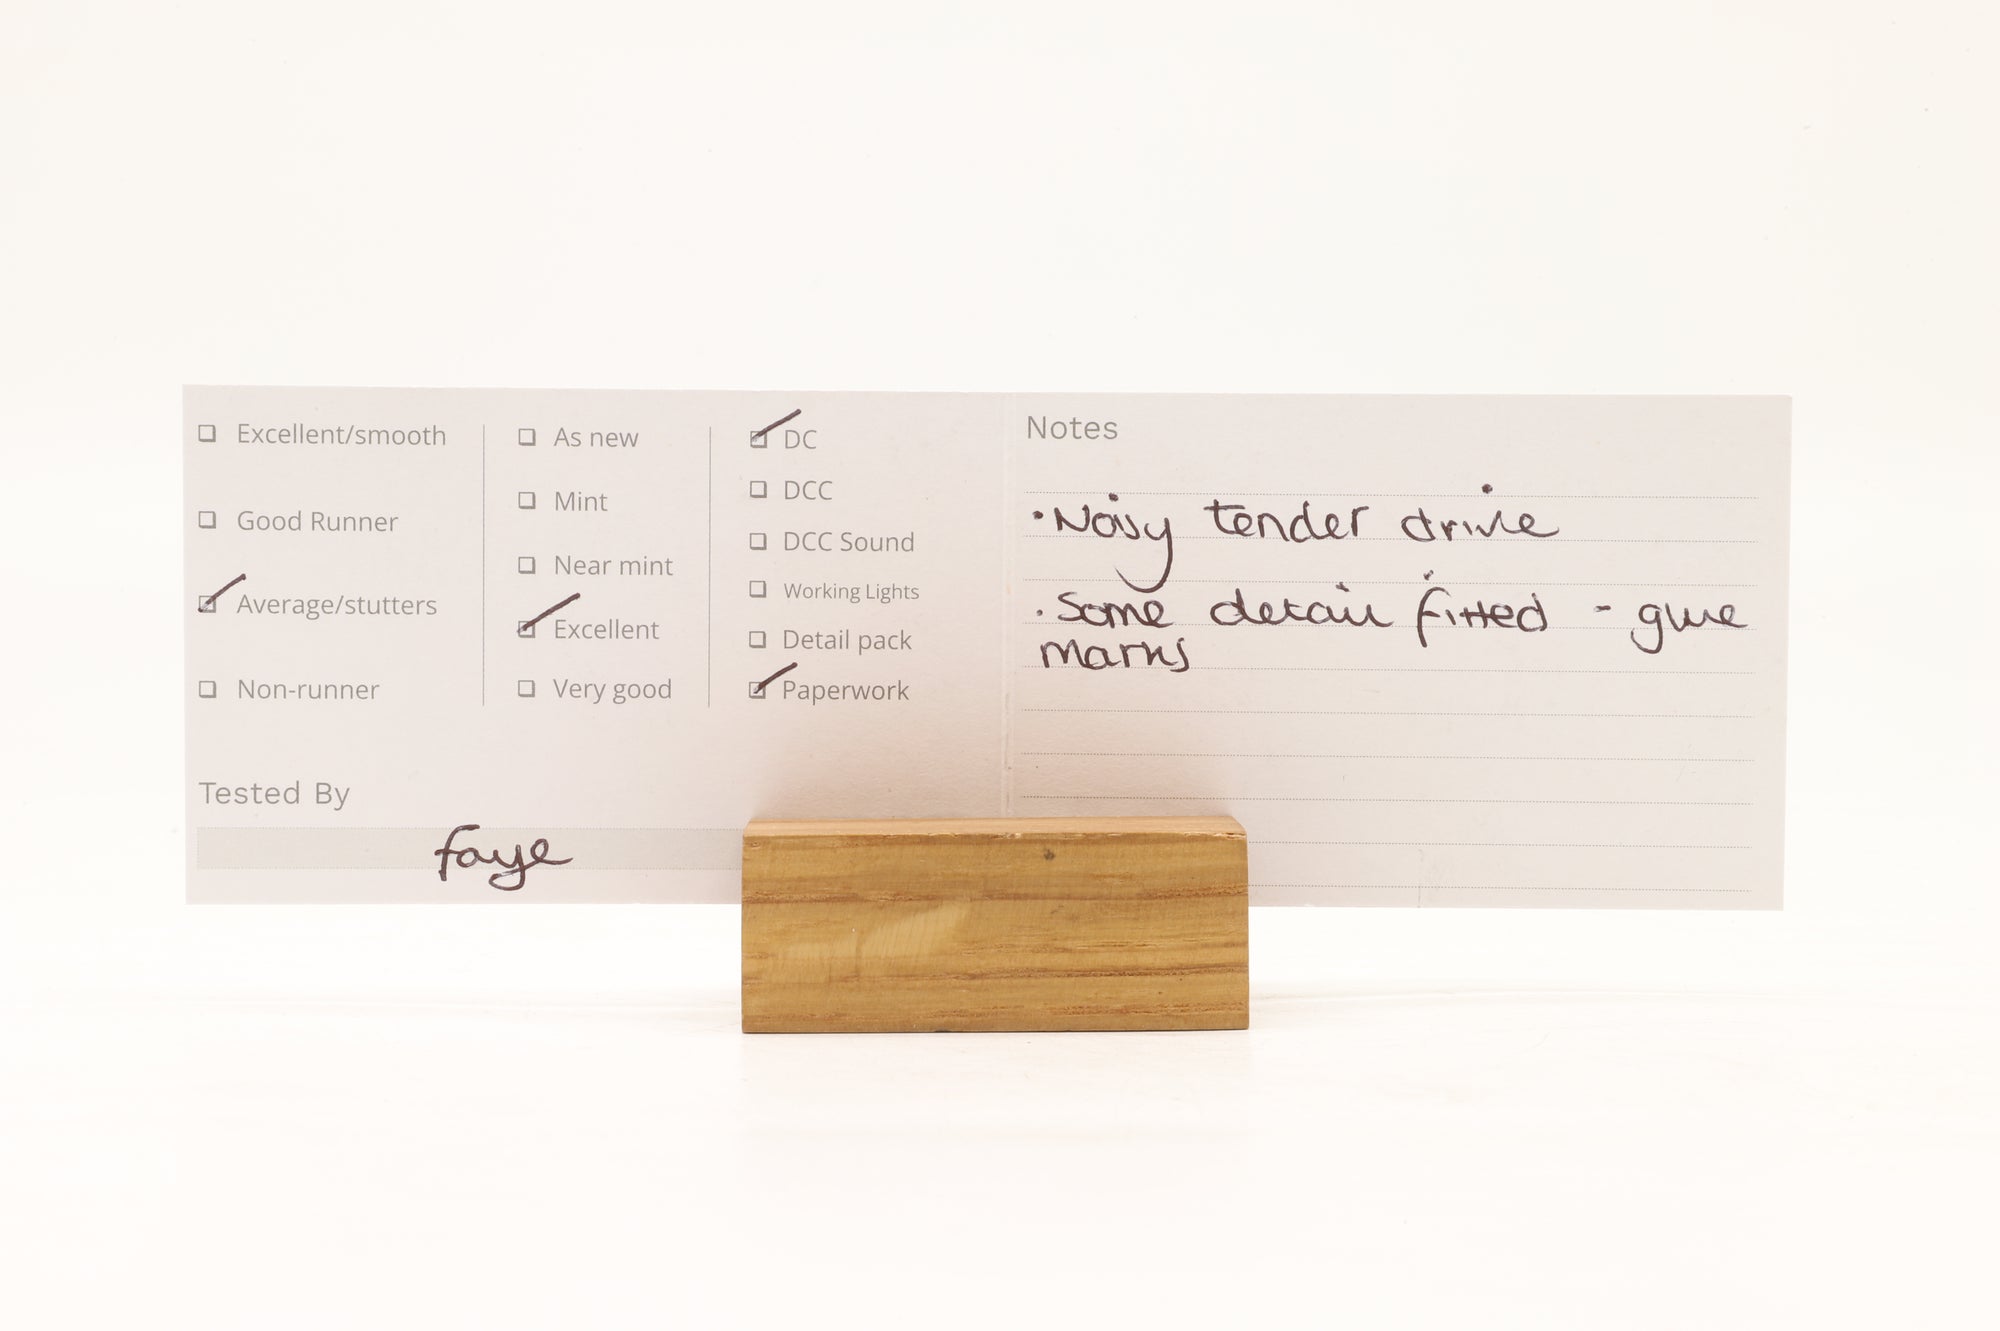 Excellent/smooth
Good Runner
Average/stutters
Non-runner
As new
Mint
Near mint
Excellent
Very good
DC
DCC
DCC Sound
Working Lights
Detail pack
Paperwork
Tested By
faye
Notes
• Noisy tender drive
• Some detail fitted - glue
marks